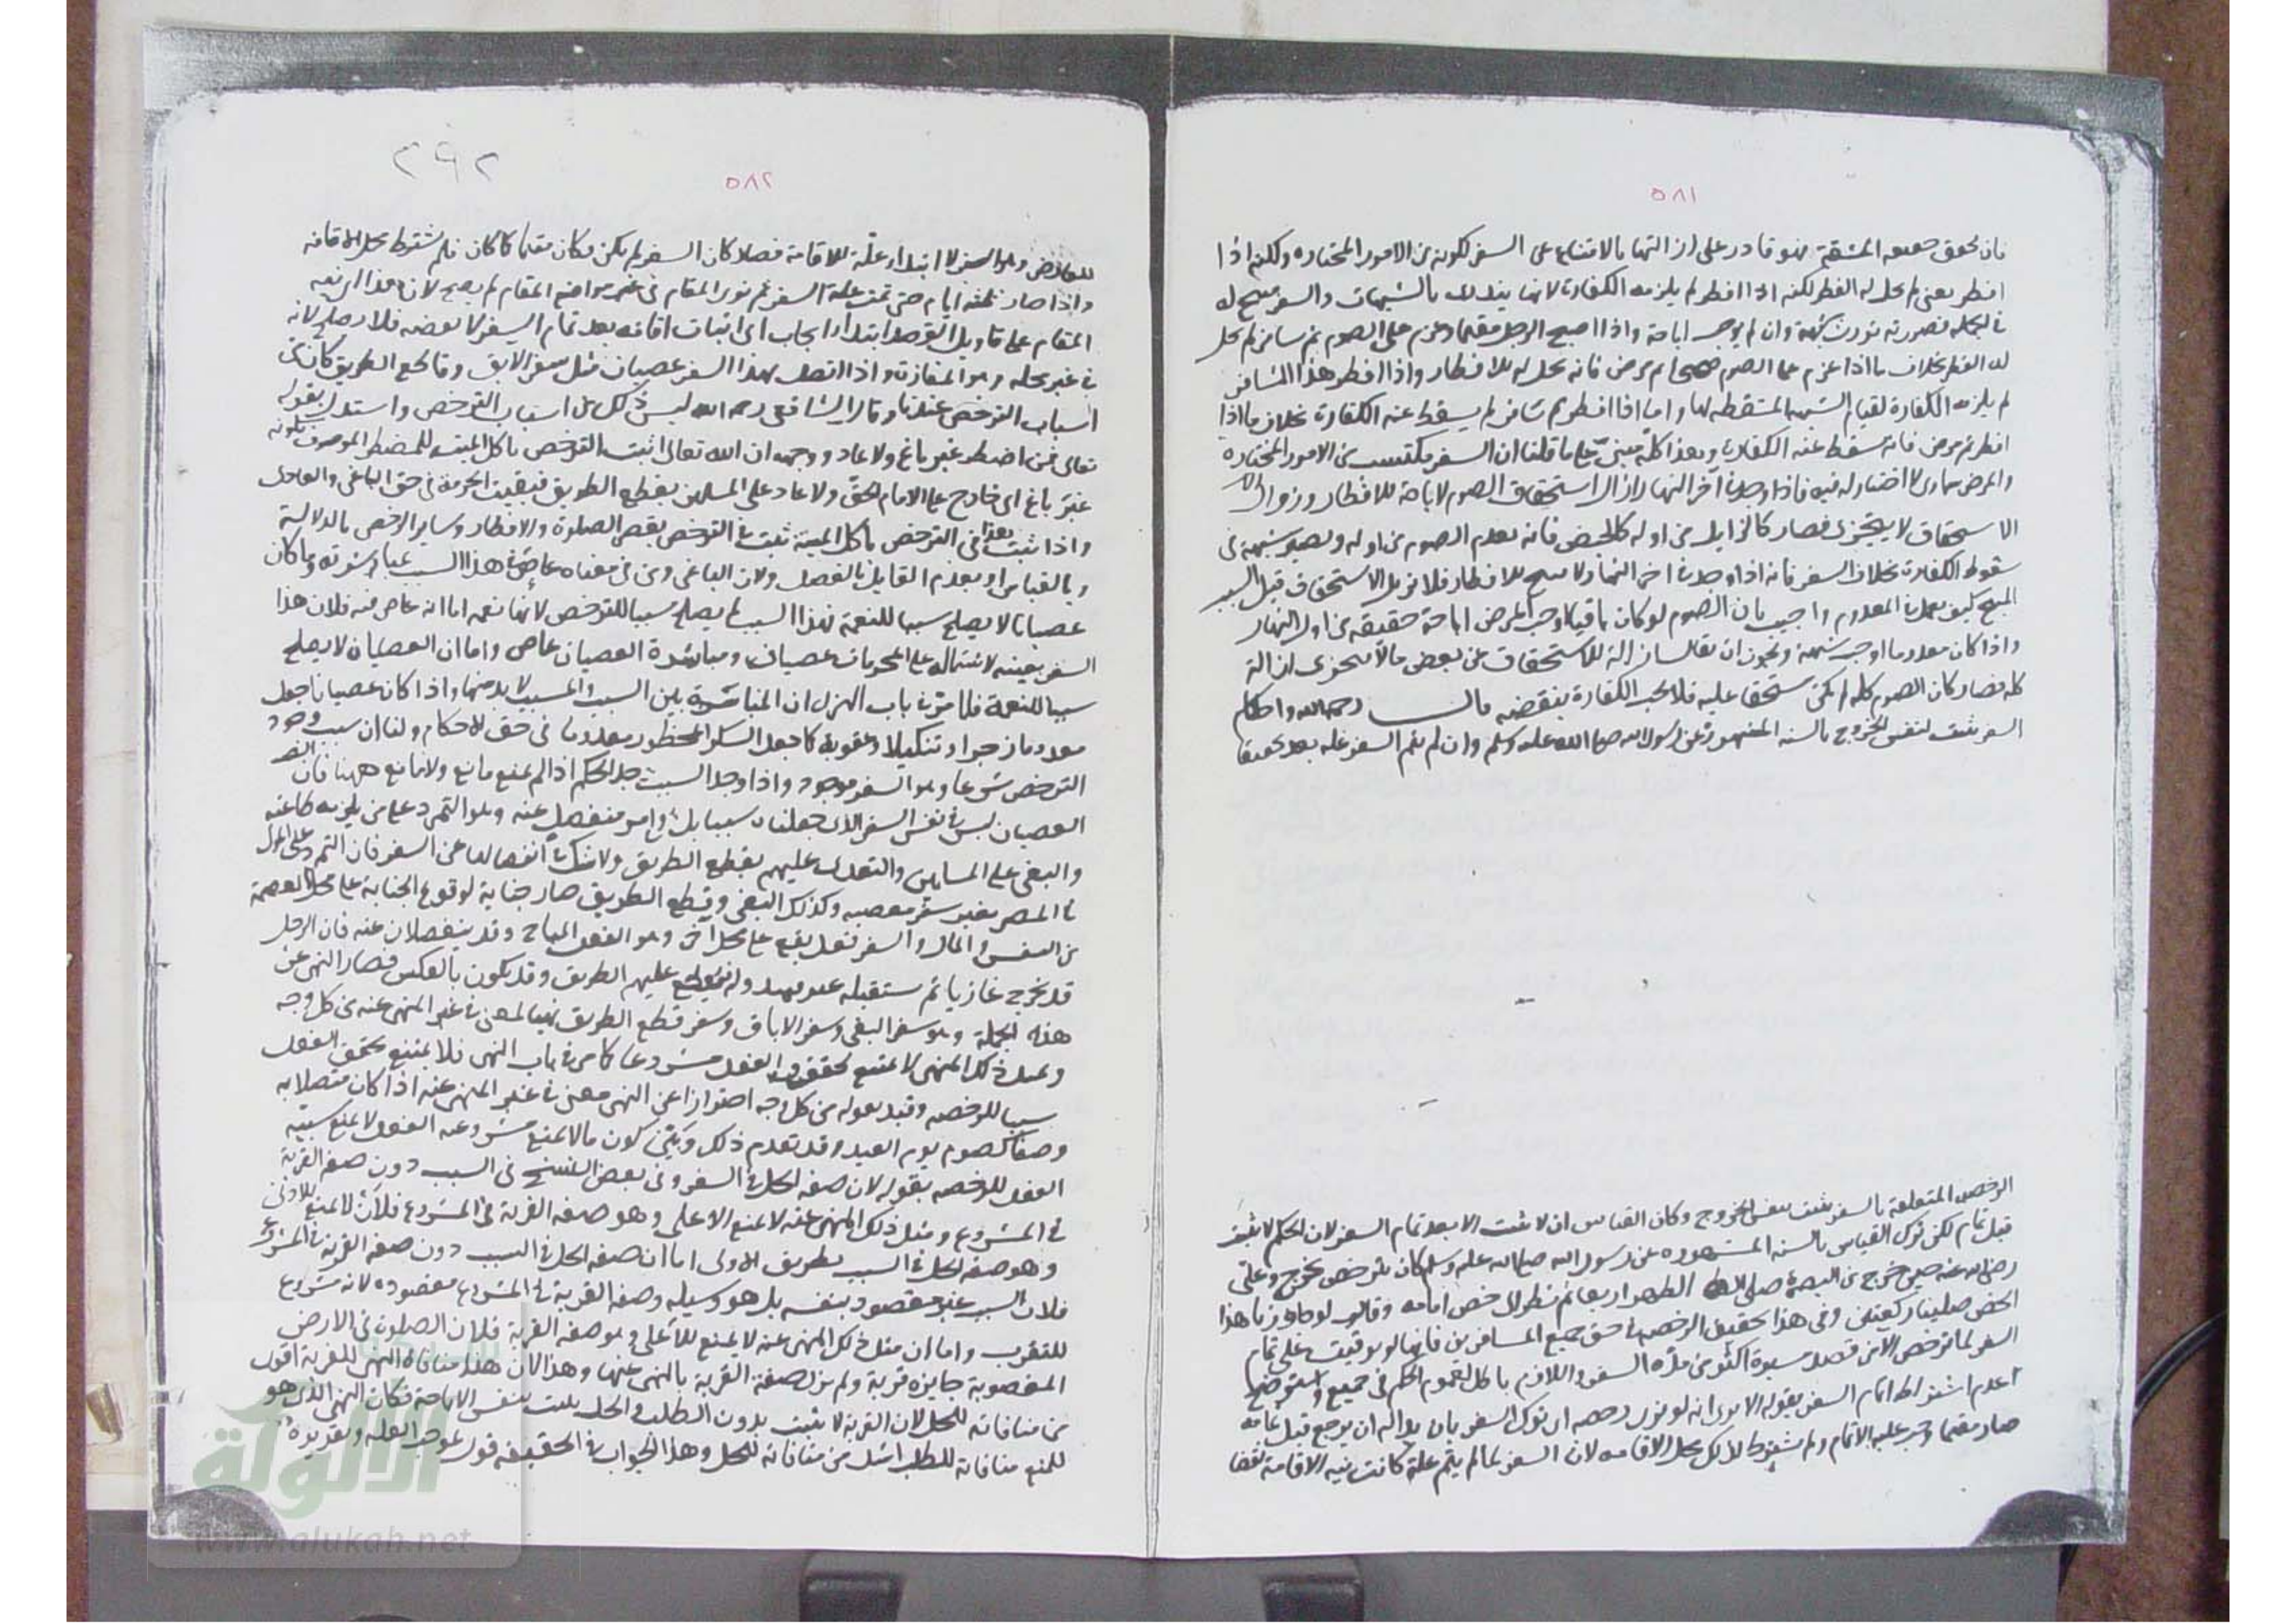 ٥٨١
فان تحقق حقيقة المشقة فهو قادر على ازالتها بالامتناع عن السفر لكونه من الامور المختارة ولكنه اذا
افطر يعنى لم يحل له الفطر لكنه اذا افطر لم يلزمه الكفارة لانها تندرئ بالشبهات والسفر مبيح له
فى الجملة فصورته تورث شبهة وان لم يوجب اباحة واذا اصبح الرجل مقيما وعزم على الصوم ثم سافر لم يحل
له الفطر بخلاف ما اذا عزم على الصوم صحيحا ثم مرض فانه يحل له الافطار واذا افطر هذا المسافر
لم يلزمه الكفارة لقيام الشبهة المسقطة لها واما اذا افطر ثم سافر لم يسقط عنه الكفارة بخلاف ما اذا
افطر ثم مرض فانه سقط عنه الكفارة وهذا كله مبنى على ما قلنا ان السفر مكتسب من الامور المختارة
والمرض سماوى لا اختيار له فيه فاذا وجد فى آخر النهار ازال استحقاق الصوم لاباحة الافطار وزوال
الاستحقاق لا يتجزى فصار كالزايل من اوله كالحيض فانه يعدم الصوم من اوله ويصير شبهة فى
سقوط الكفارة بخلاف السفر فانه اذا وجد فى آخر النهار لا يبيح الافطار فلا يزيل الاستحقاق قيل السبب
المبيح كيف يعمل فى المعدوم واجيب بان الصوم لو كان باقيا اوجب المرض اباحة حقيقة من اول النهار
واذا كان معدوما اوجب شبهة ويجوز ان يقال ازالة الاستحقاق عن بعض ما لا يتجزى ازالة
كله فصار كان الصوم كله لم يكن مستحقا عليه فلا يجب الكفارة بنقضه قال رحمه الله واحكام
السفر يثبت بنفس الخروج بالسنة المشهورة عن رسول الله صلى الله عليه وسلم وان لم يتم السفر علة بعد تحقيقا
الرخص المتعلقة بالسفر يثبت بنفس الخروج وكان القياس ان لا يثبت الا بعد تمام السفر لان الحكم لا يثبت
قبل تمام لكن ترك القياس بالسنة المشهورة عن رسول الله صلى الله عليه وسلم كان يترخص بخروج وعلى
رضى الله عنه حين خرج من البصرة صلى الظهر اربعا ثم نظر الى خص امامه وقال لو جاوزنا هذا
الخص صلينا ركعتين وفى هذا تحقيق الرخصة فى حق جميع المسافرين فانها لو توقفت على تمام
السفر لما ترخص الا من قصد مسيرة اكثر من مدة السفر واللازم باطل لعموم الحكم فى جميع واستوضح
عدم اشتراط اتمام السفر بقوله الا يرى انه لو نوى رخصه اى ترك السفر بان بدا له ان يرجع قبل تمامه
صار مقيما وجب عليه الاتمام ولم يشترط لذلك محل الاقامه لان السفر لما لم يتم علة كانت نيه الاقامة نقضا
٢٩٢
٥٨٢
للعارض وهو السفر لا ابتداء علة للاقامة فصار كان السفر لم يكن وكان مقيما كما كان فلم يشترط محل الاقامه
واذا صار ثلثه ايام حتى تمت علة السفر ثم نوى المقام فى غير مواضع المقام لم يصح لان هذا اى نيه
المقام على تاويل القصد ابتداء ايجاب اى اثبات اقامه بعد تمام السفر لا نقضه فلا يصلح لانه
فى غير محله وهو المفازة واذا اتصل بهذا السفر عصيان مثل سفر الابق وقاطع الطريق كان من
اسباب الترخص عندنا وقال الشافعى رحمه الله ليس ذلك من اسباب الترخص واستدل بقوله
تعالى فمن اضطر غير باغ ولا عاد ووجهه ان الله تعالى اثبت الترخص باكل الميتة للمضطر الموصوف بكونه
غير باغ اى خارج على الامام الحق ولا عاد على المسلمين بقطع الطريق فبقيت الحرمة فى حق الباغى والعادى
واذا ثبت هذا فى الترخص باكل الميتة ثبت فى الترخص بقصر الصلوة والافطار وساير الرخص بالدلالة
وبالقياس او بعدم القايل بالفصل ولان الباغى ومن فى معناه عاص فى هذا السبب بمباشرته وما كان
عصيانا لا يصلح سببا للنعمة فهذا السبب لم يصلح سببا للترخص لانها نعمه اما انه عاص فيه فلان هذا
السفر بعينه لاشتماله على المحرمات عصيان ومباشرة العصيان عاص واما ان العصيان لا يصلح
سببا للنعمة فلما مر فى باب الهزل ان المناسبة بين السبب والمسبب لا بد منها واذا كان عصيانا جعل
معدوما زجرا وتنكيلا وعقوبة كما جعل السكر المحظور معدوما فى حق الاحكام ولنا ان سبب وجود
الترخص شرعا وهو السفر موجود واذا وجد السبب وجد الحكم اذا لم يمنع مانع ولا مانع ههنا فان
العصيان ليس فى نفس السفر الذى جعلناه سببا بل فى امر منفصل عنه وهو التمرد على من يلزمه طاعته
والبغى على المسلمين والتعدى عليهم بقطع الطريق ولا شك فى انفصالها عن السفر فان التمرد على المولى
فى المصر بغير سفر معصيه وكذلك البغى وقطع الطريق صار جناية لوقوع الجناية على محل العصمة
من النفس والمال والسفر فعل يقع على محل آخر وهو الفعل المباح وقد ينفصلان عنه فان الرجل
قد يخرج غازيا ثم يستقبله عير فيبدو له فيقطع عليهم الطريق وقد يكون بالعكس فصار النهى عن
هذه الجملة وهو سفر البغى وسفر الاباق وسفر قطع الطريق نهيا لمعنى فى غير المنهى عنه من كل وجه
ومثل ذلك المنهى لا يمتنع تحقق الفعل مشروعا كما مر فى باب النهى فلا يمتنع تحقق الفعل
سببا للرخصه وقيد بقوله من كل وجه احترازا عن النهى معنى فى غير المنهى عنه اذا كان متصلا به
وصفا كصوم يوم العيد وقد تقدم ذلك وبين كون ما لا يمنع مشروعيه الفعل لا يمنع سببيه
الفعل للرخصه بقوله لان صفه الحل فى السفر وفى بعض النسخ فى السبب دون صفه القربة
فى المشروع ومثل ذلك المنهى عنه لا يمنع الاعلى وهو صفه القربة فى المشروع فلان لا يمنع الادنى
وهو صفه الحل فى السبب بطريق الاولى اما ان صفه الحل فى السبب دون صفه القربة فى المشروع
فلان السبب غير مقصود بنفسه بل هو وسيله وصفه القربة فى المشروع مقصوده لانه مشروع
للتقرب واما ان مثل ذلك المنهى عنه لا يمنع الاعلى وهو صفه القربة فلان الصلوة فى الارض
المغصوبة جايزه قربة ولم يزل صفة القربة بالنهى عنها وهذا لان هذا منافاة النهى للقربة اقوى
من منافاته للحل لان القربة لا تثبت بدون الطلب والحل يثبت بنفس الاباحة فكان النهى الذى هو
للمنع منافاته للطلب اشد من منافاته للحل وهذا الجواب فى الحقيقه قول بموجب العلة وتقريره
الألوكة
www.alukah.net